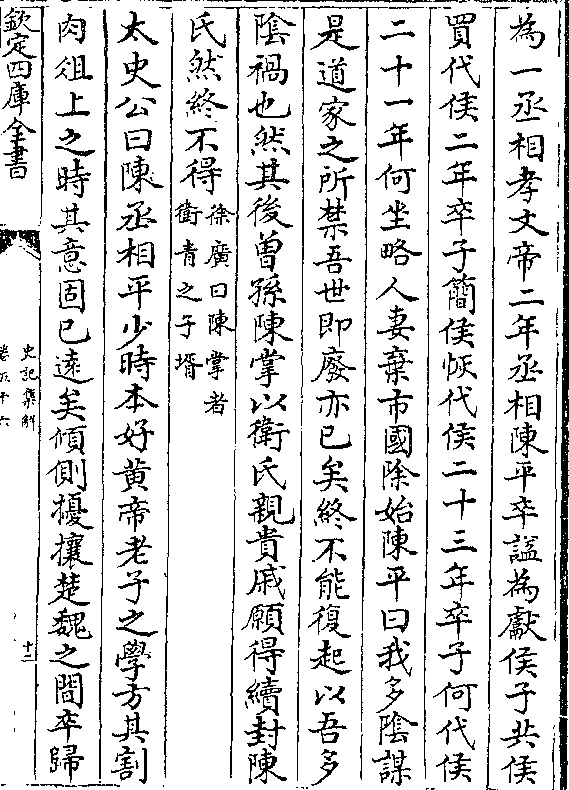 為一丞相孝文帝二年丞相陳平卒諡為獻侯子共侯
買代侯二年卒子簡侯恢代侯二十三年卒子何代侯
二十一年何坐略人妻棄市國除始陳平曰我多陰謀
是道家之所禁吾世即廢亦已矣終不能復起以吾多
陰禍也然其後曽孫陳掌以衛氏親貴戚願得續封陳
氏然終不得
徐廣曰陳掌者
衛青之子壻
太史公曰陳丞相平少時本好黄帝老子之學方其割
肉俎上之時其意固已遠矣傾側擾攘楚魏之間卒歸
欽定四庫全書
史記集解
卷五十六
十二